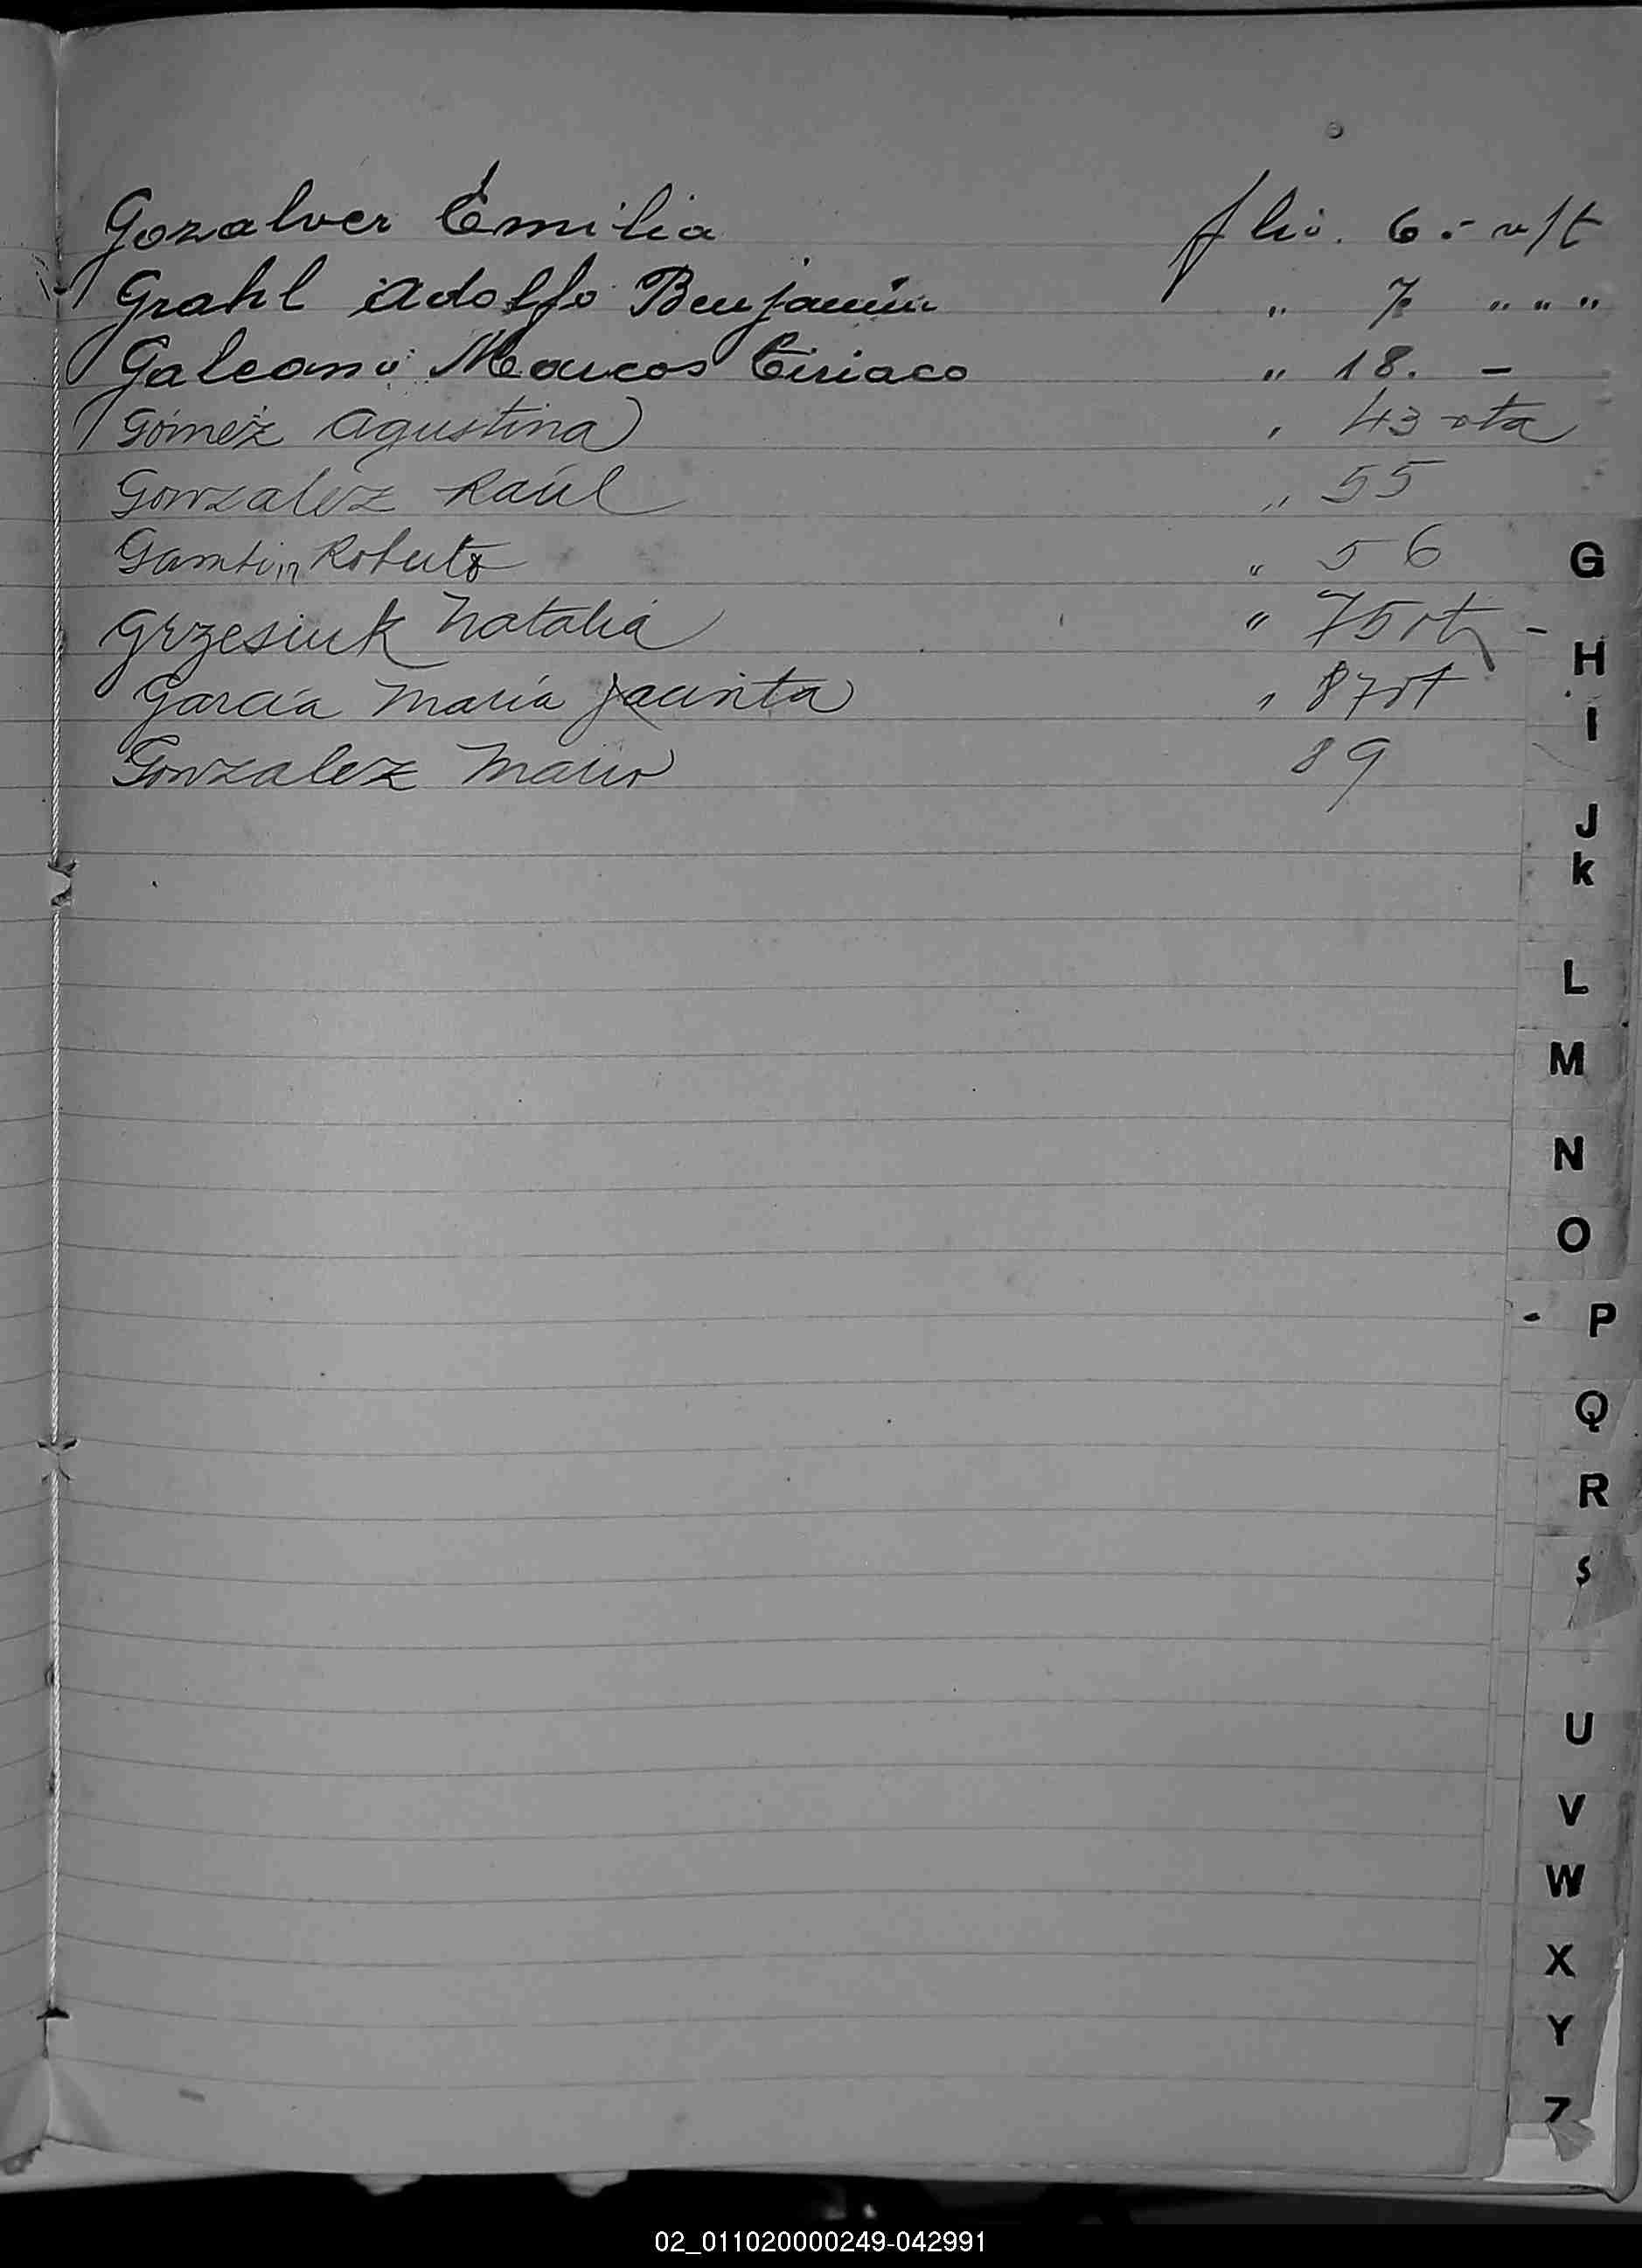 Gozalver Emilia flio. 6.- v/t
Grahl Adolfo Benjamin " 7 " " "
Galeano Marcos Ciriaco " 18. -
Gómez Agustina , 43 vta
Gonzalez Raúl " 55
Roberto " 56
Grzesiuk Natalia " 75 vt
García María Jacinta " 87 vt
Gonzalez Mario 89
G
H
I
J
K
L
M
N
O
P
Q
R
S
U
V
W
X
Y
Z
02_011020000249-042991